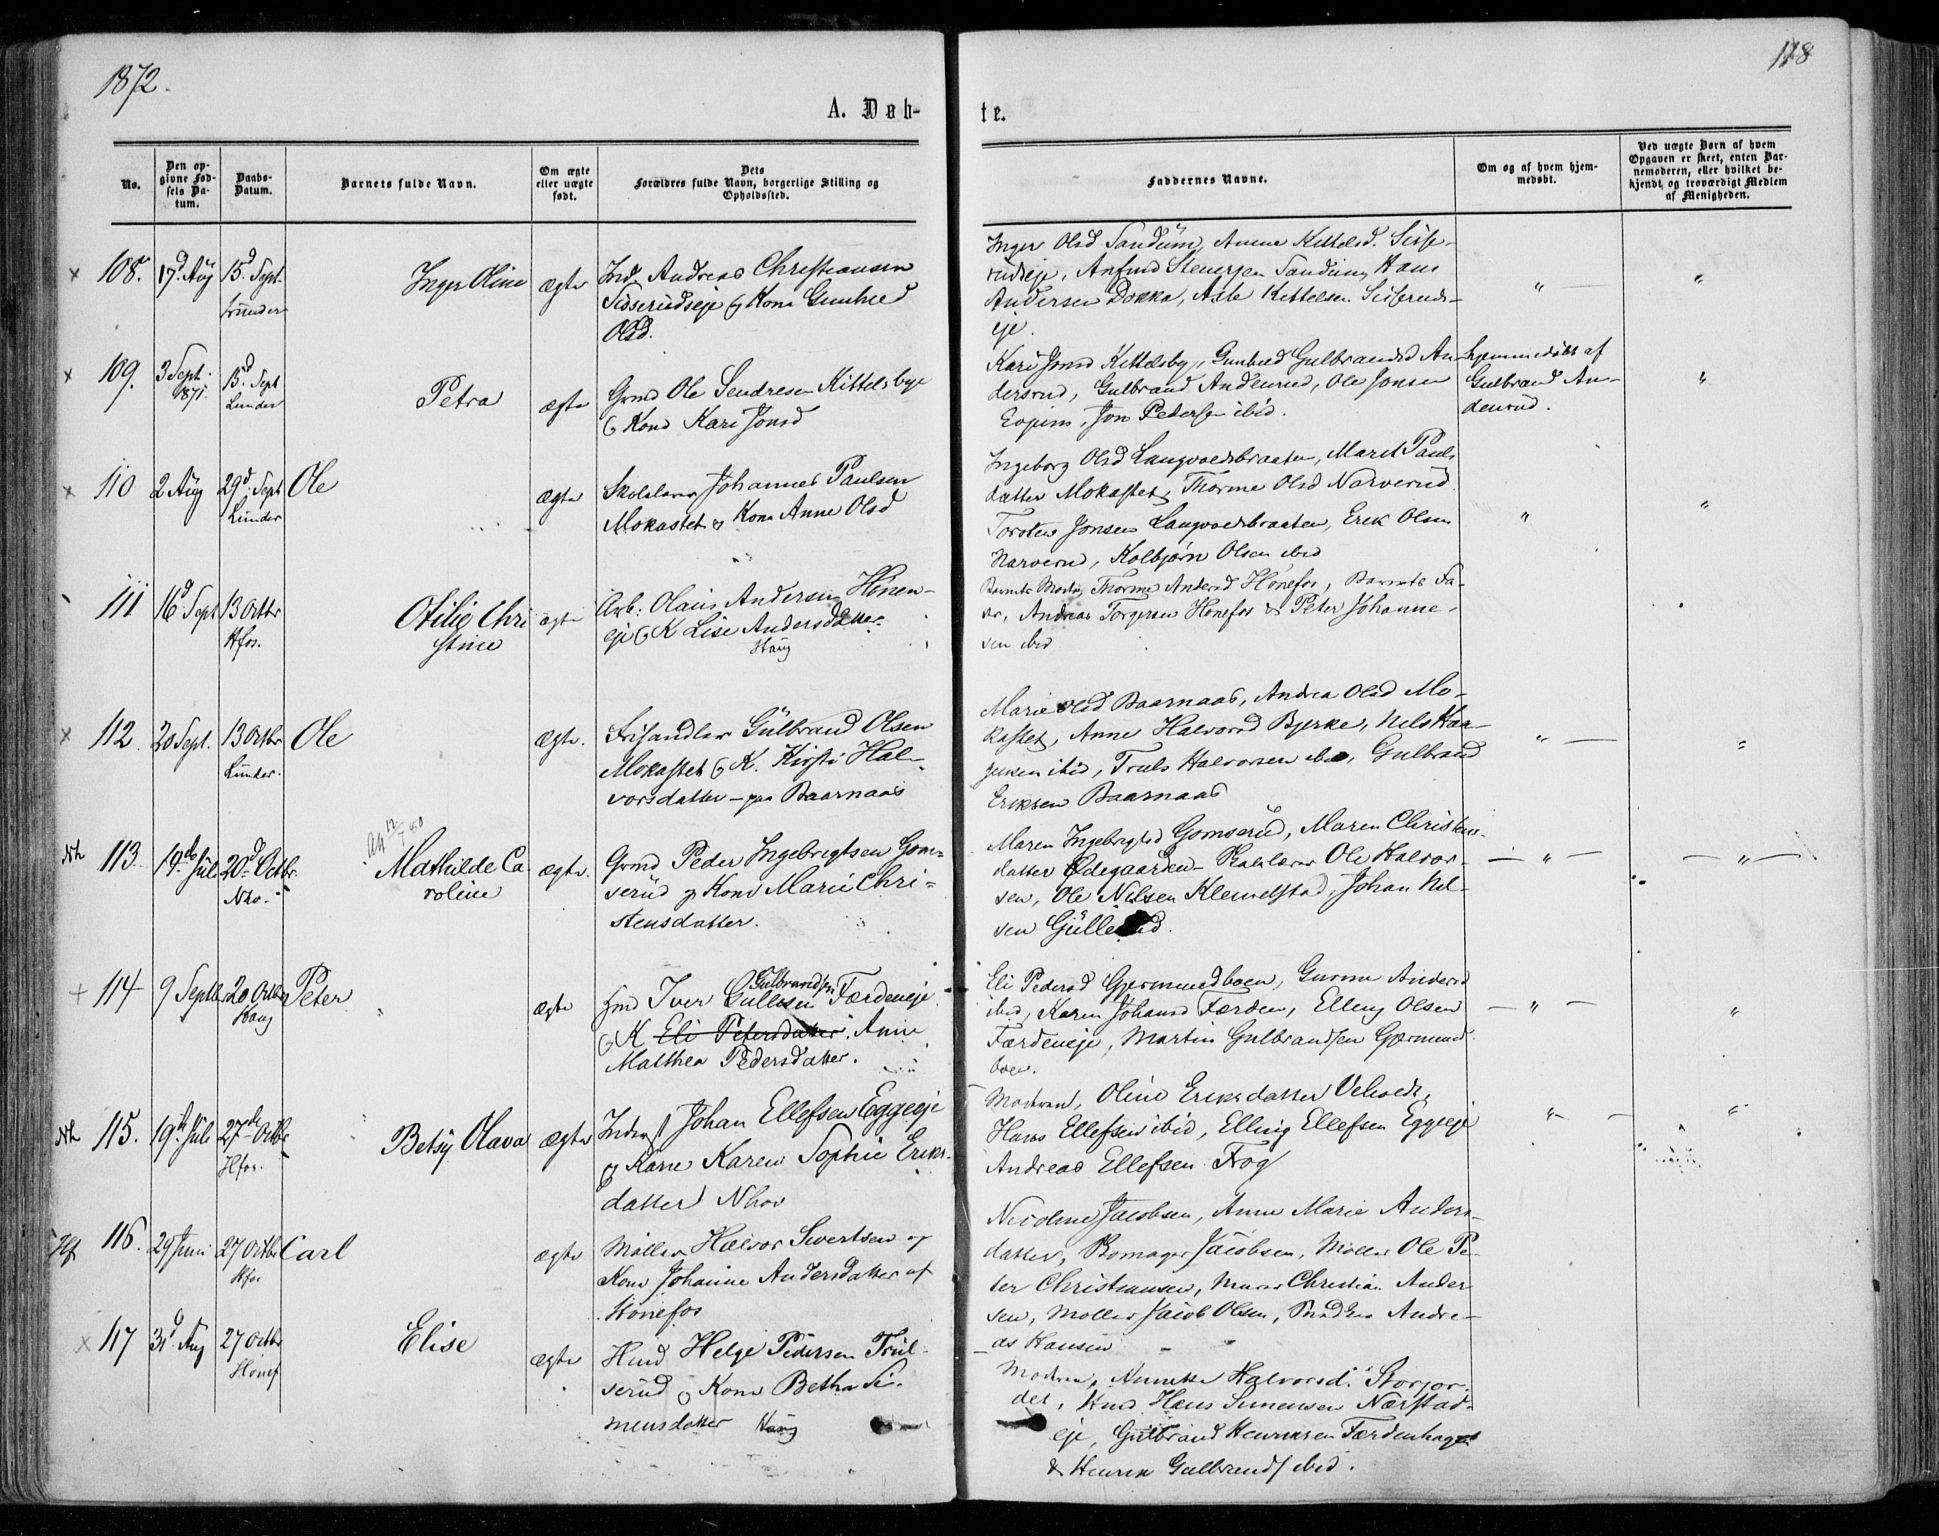 1872.
118
A. Døb-
te.
No.
Den op-
givne Fød-
sels Da-
tum.
Daabs-
Datum.
Barnets fulde Navn.
Om ægte
eller uægte
født.
Dets
Forældres fulde Navn, borgerlige Stilling og
Opholdssted.
Faddernes Navne.
Om og af hvem hjem-
medøbt.
Ved uægte Børn af hvem
Opgaven er skeet, enten Bar-
nemoderen, eller hvilket be-
kjendt og troværdigt Medlem
af Menigheden.
x 108. 17d Aug 15d Sept. Lunder
Inger Oline ægte
Ind. Andreas Christiansen
Sisserudseje & Kone Gunhild
Olsd.
Inger Olsd Sandum, Anne Kittelsd. Sisse-
rudseje, Anfind Stenersen Sandum, Hans
Andersen Dokka, Asle Kittelsen Sisseruds-
eje.
" —
"
x 109. 3 Sept. 1871. 15d Sept Lunder
Petra ægte
Grmd Ole Sendresen Kittelsbye
& Kone Kari Jonsd
Kari Jonsd Kittelsby, Gunhild Gulbrandsd An-
dersrud, Gulbrand Andersrud, Ole Jonsen
Jon Pedersen ibid.
hjemmedøbt af
Gulbrand An-
dersrud.
"
x 110 2 Aug 29d Sept Lunder
Ole ægte
Skolelærer Johannes Paulsen
Mokastet & Kone Anne Olsd
Ingeborg Olsd Langvoldsbraaten, Marit Pauls
datter Mokastet, Thorine Olsd Narverud
Torsten Jonsen Langvoldsbraaten, Erik Olsen
Narverud, Kolbjørn Olsen ibid
"
"
111 16d Sept 13 Octbr Hfos.
Otilie Chri
stine
ægte
Arb: Olaus Andersen Hønen-
eje & K Lise Andersdatter.
Haug
Barnets Moder, Thorine Andersd Hønefos, Barnets Fa-
der, Andreas Torgersen Hønefos & Peter Johanne-
sen ibid
x 112. 20 Sept. 13 Octbr Lunder.
Ole ægte.
Frihandler Gulbrand Olsen
Mokastet & K. Kirsti Hal-
vorsdatter – paa Baarnaas
Marie Olsd Baarnaas, Andrea Olsd Mo-
kastet, Anne Halvorsd Bjerke, Nels Haa-
gensen ibid, Truls Halvorsen ibid, Gulbrand
Eriksen Baarnaas
" —
"
Nh 113. 19de Juli 20d Octbr. Nho.
Att 12/7 80
Mathilde Ca-
roline
ægte.
Grmd Peder Ingebrigtsen Gom-
serud & Kone Marie Chri-
stensdatter.
Maren Ingebrigtsd Gomserud, Maren Christens-
datter Ødegaarden Skolelærer Ole Halvor-
sen, Ole Nilsen Klemetstad, Johan Nil-
sen Gullerud.
— " —
— " —
+ 114 9 Septb 20 Octbr Haug
Peter ægte
Gulbrandsen
Hmd Iver Gullesen Færdeneje
& K Eli Petersdatter. Anne
Mathea Pedersdatter.
Eli Pedersd Gjermundboen, Gunne Andersd
ibid, Karen Johansd Færden, Elling Olsen
Færdeneje, Martin Gulbrandsen Gjermund
boen.
— " —
"
Nh 115. 19de Juli 27de Octbr Hfos.
Betsy Olava ægte
Inderst Johan Ellefsen Eggeeje
& Kone Karen Sophie Eriks-
datter Nhov
Moderen, Oline Eriksdatter Velvoldt,
Hans Ellefsen ibid, Elling Ellefsen Eggeeje
Andreas Ellefsen Frog
" —
"
Hf 116. 29 Juni 27 Octbr Hfos
Carl ægte
Møller Halvor Sivertsen og
Kone Johanne Andersdatter af
Hønefos
Nicoline Jacobsen, Anne Marie Anders-
datter, Jacobsen, Møller Ole Pe-
ter Christiansen, Murer Christian Ander
sen, Møller Jacob Olsen, Andre-
as Hansen
x 117 31d Aug 27 Octbr Hønef
Elise ægte
Hmd Helge Pedersen Trul-
serud & Kone Betha Si-
mensdatter Haug
Moderen, Annette Halvorsd. Storjor-
det, Hmd Hans Simensen Nærstad-
eje, Gulbrand Henriksen Færdenhagen
& Henrik Gulbrands ibid.